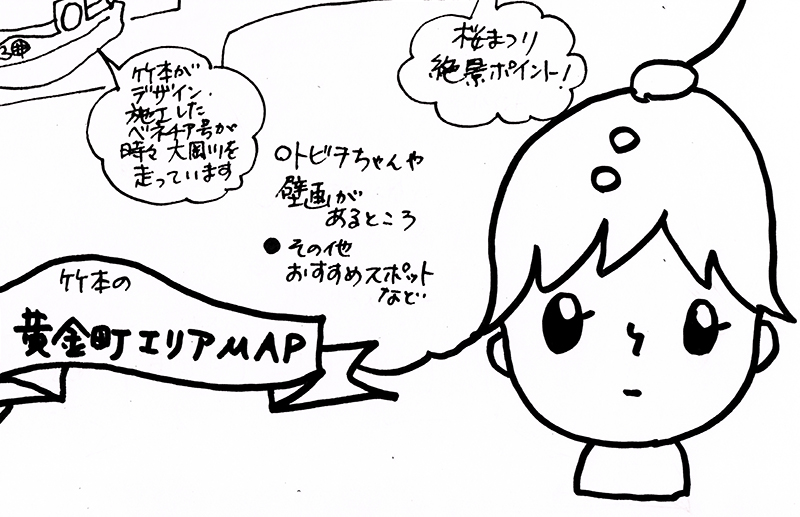 竹本が
デザイン・
施工した
ベネチア号が
時々 大岡川を
走っています
桜まつり
絶景ポイント!
○トビヲちゃんや
壁画が
あるところ
●その他
おすすめスポット
など
竹本の
黄金町エリアMAP